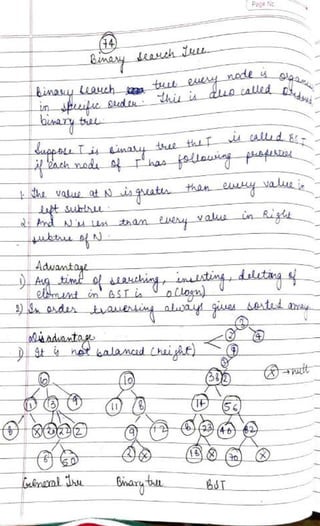 Page No.
74
Binary Search Tree
Binary Search tree every node is organ
in specific order. This is also called Ordered
binary tree
Suppose T is binary tree the T is called BST
if each node of T has following properties
1. The value at N is greater than every value in
left subtree.
2. And N is less than every value in Right
subtree of N.
Advantage
1) Avg time of searching, inserting, deleting of
element in BST is O(logn)
2) In order traversing always gives sorted array
Disadvantage
1) It is not balanced (height)
X → null
General Tree Binary tree BST